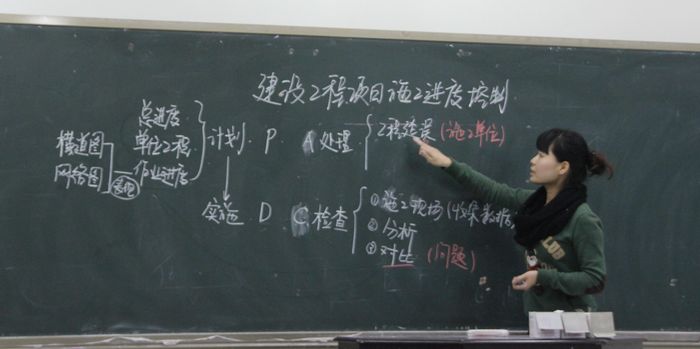 建设工程项目施工进度控制
总进度
单位工程
作业进度
横道图
网络图
表现
计划 P
实施 D
A 处理
工程建设 (施工单位)
C 检查
① 施工现场 (收集数据
② 分析
③ 对比 (问题)